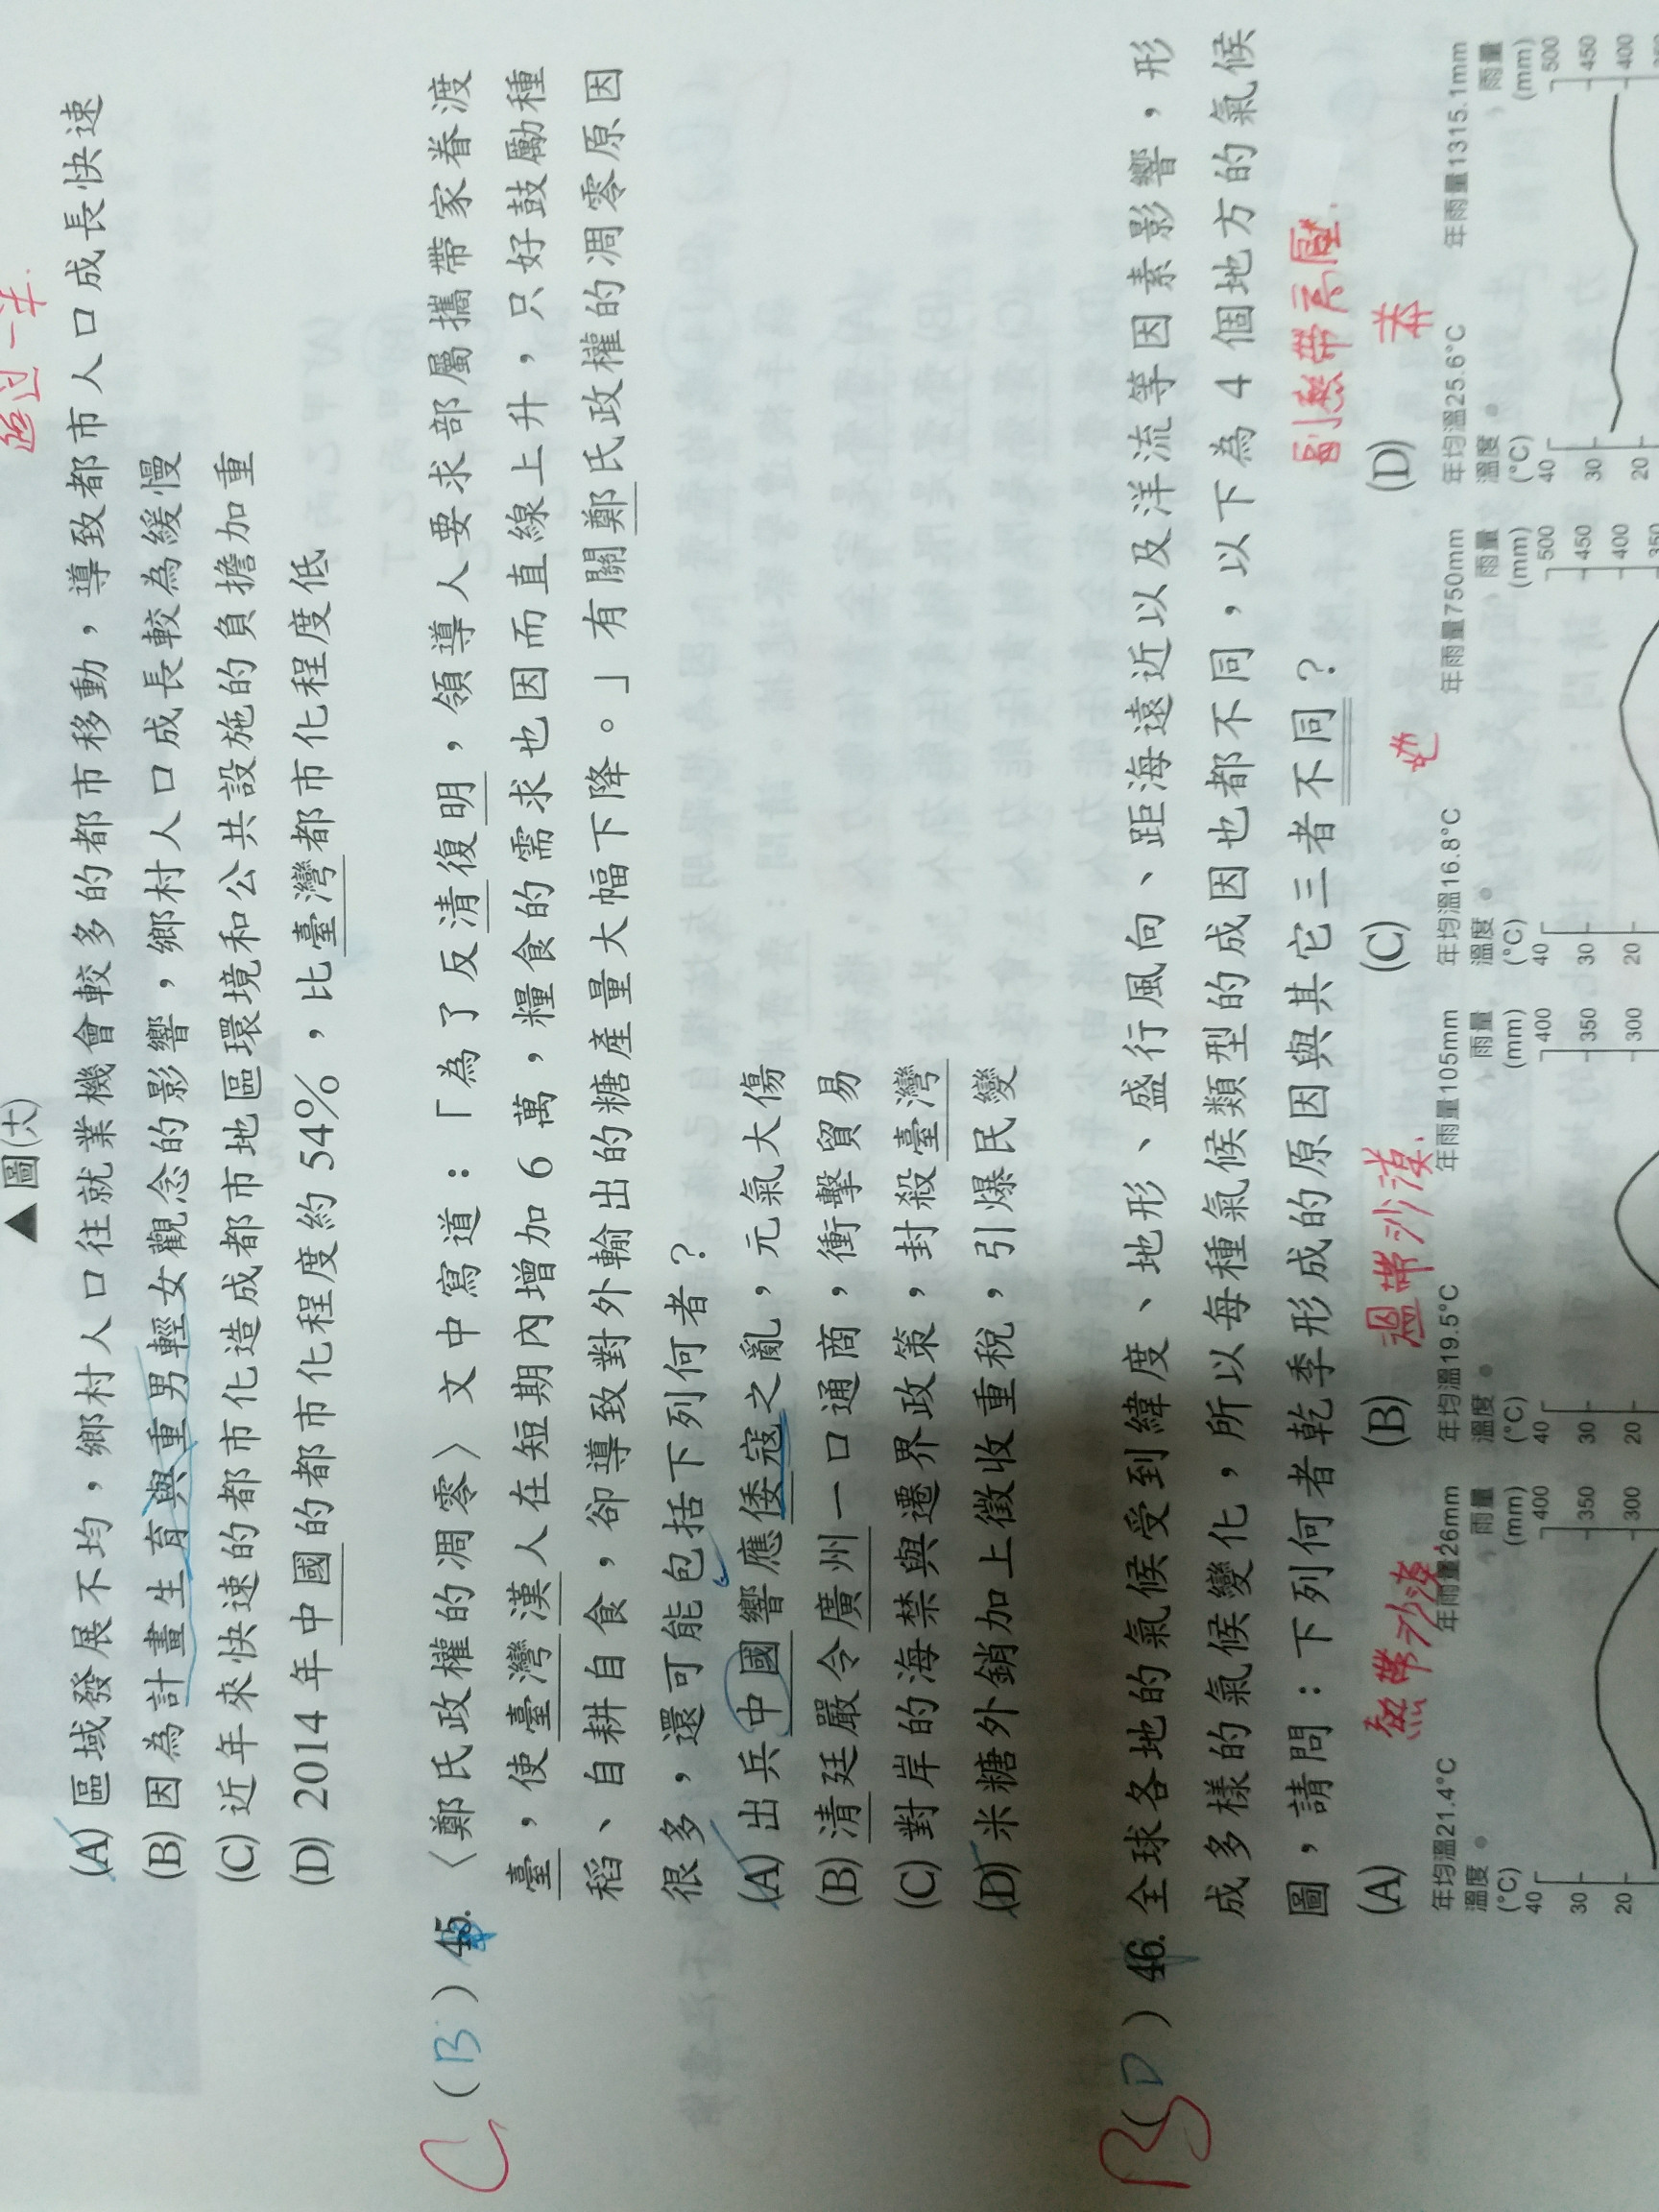 超过一半.
▲圖(六)
(A)區域發展不均，鄉村人口往就業機會較多的都市移動，導致都市人口成長快速
(B)因為計畫生育與重男輕女觀念的影響，鄉村人口成長較為緩慢
(C)近年來快速的都市化造成都市地區環境和公共設施的負擔加重
(D) 2014 年中國的都市化程度約 54%，比臺灣都市化程度低
C
(B) 45.〈鄭氏政權的凋零〉文中寫道：「為了反清復明，領導人要求部屬攜帶家眷渡
臺，使臺灣漢人在短期內增加 6 萬，糧食的需求也因而直線上升，只好鼓勵種
稻、自耕自食，卻導致對外輸出的糖產量大幅下降。」有關鄭氏政權的凋零原因
很多，還可能包括下列何者？
(A)出兵中國響應倭寇之亂，元氣大傷
(B)清廷嚴令廣州一口通商，衝擊貿易
(C)對岸的海禁與遷界政策，封殺臺灣
(D)米糖外銷加上徵收重稅，引爆民變
B
(D) 46.全球各地的氣候受到緯度、地形、盛行風向、距海遠近以及洋流等因素影響，形
成多樣的氣候變化，所以每種氣候類型的成因也都不同，以下為 4 個地方的氣候
圖，請問：下列何者乾季形成的原因與其它三者不同？
副熱帶高壓.
(A) 熱帶沙漠.
年均溫21.4°C 年雨量26mm
溫度 雨量
(°C) (mm)
40 400
30 350
20 300
(B) 溫帶沙漠.
年均溫19.5°C 年雨量105mm
溫度 雨量
(°C) (mm)
40 400
30 350
20 300
(C) 地
年均溫16.8°C 年雨量750mm
溫度 雨量
(°C) (mm)
40 500
30 450
20 400
350
(D) 莽
年均溫25.6°C 年雨量1315.1mm
溫度 雨量
(°C) (mm)
40 500
30 450
20 400
350